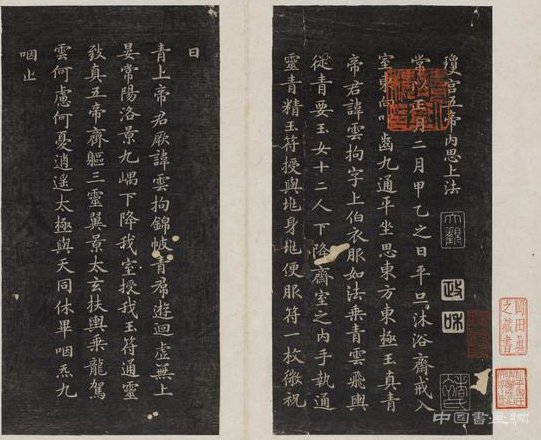 瓊宮五帝內思上法
常以正月二月甲乙之日平旦沐浴齋戒入
室東向叩齒九通平坐思東方東極玉真青
帝君諱雲拘字上伯衣服如法乘青雲飛輿
從青要玉女十二人下降齋室之內手執通
靈青精玉符授與兆身兆便服符一枚微祝
曰
青上帝君厥諱雲拘錦帔青帬遊迴虛無上
晏常陽洛景九嵎下降我室授我玉符通靈
致真五帝齊軀三靈翼景太玄扶輿乘龍駕
雲何慮何憂逍遙太極與天同休畢咽炁九
咽止
大觀
政和
岡田真
之藏書
中国書画網